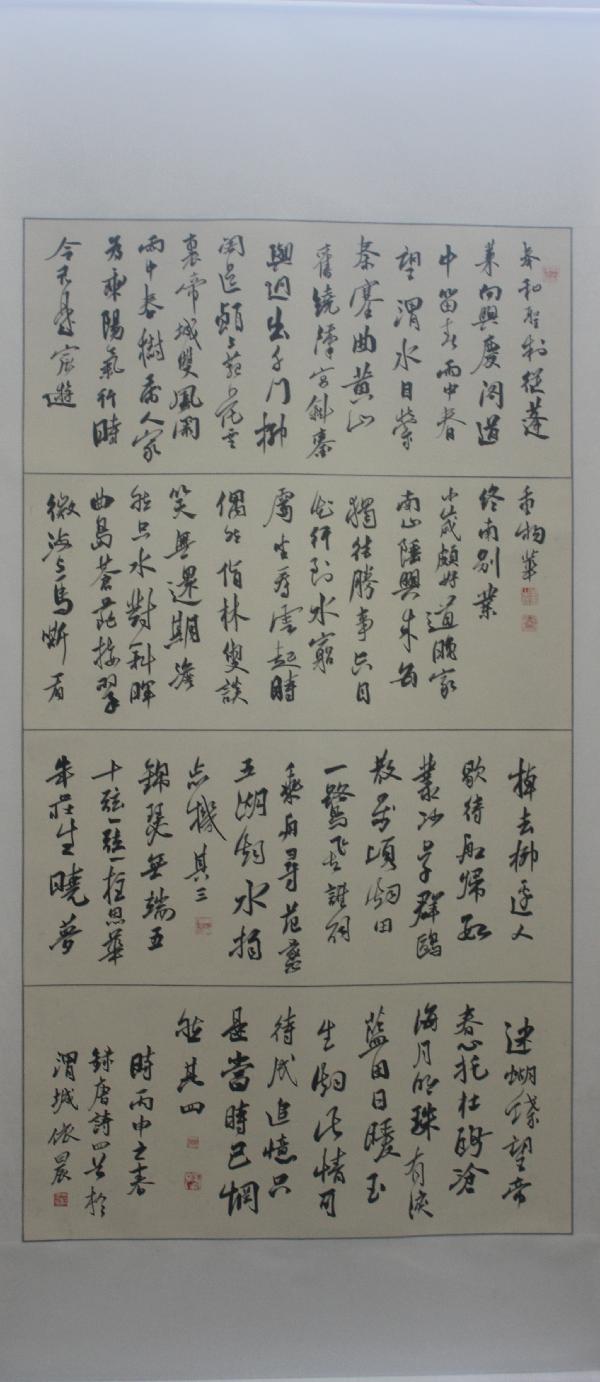 奉和聖制從蓬
萊向興慶閣道
中留春雨中春
望 渭水自縈
秦塞曲黃山
舊繞漢宮斜鑾
輿迥出千門柳
閣道苑花雲
裏帝城雙鳳闕
雨中春樹萬人家
為乘陽氣行時
令不是宸遊
物華
終南別業
中歲頗好道晚家
南山陲興來每
獨往勝事空自
知行到水窮
處坐看雲起時
偶然值林叟談
笑無還期澹
然空水對斜暉
曲島蒼茫接翠
微波上馬嘶看
棹去柳邊人
歇待船歸數
叢沙草群鷗
散萬頃烟田
一鷺飛誰解
乘舟尋范蠡
五湖烟水獨
忘機 其三
錦瑟無端五
十弦一弦一柱思華
年莊生曉夢
迷蝴蝶望帝
春心托杜鵑滄
海月明珠有淚
藍田日暖玉
生烟此情可
待成追憶只
是當時已惘
然其四
時丙申之春
錄唐詩四首於
渭城依晨